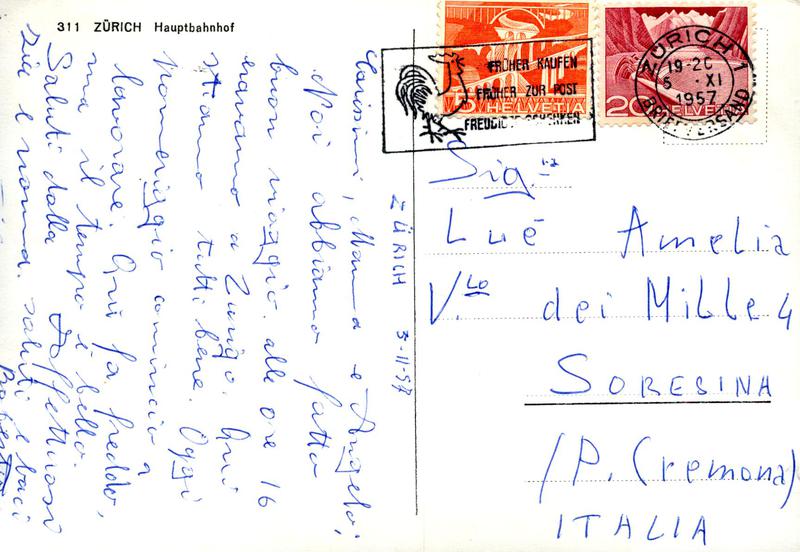 311 ZÜRICH Hauptbahnhof
Carissimi, Mamma e Angelo;
Noi abbiamo fatto
buon viaggio. alle ore 16
eravamo a Zurigo. Qui
stiamo tutti bene. Oggi
Pomeriggio comincio a
lavorare. Qui fa freddo,
ma il tempo è bello.
Saluti dalla Affettuosi
zia e nonna. saluti e baci
ZÜRICH 3-11-57
5 HELVETIA
20 HELVETIA
FRÜHER KAUFEN
FRÜHER ZUR POST
FREUDIGER SCHENKEN
ZÜRICH 1
19-20
5. XI
1957
BRIEFVERSAND
Sig.na
Lué Amelia
V.lo dei Mille 4
SORESINA
(P. Cremona)
ITALIA